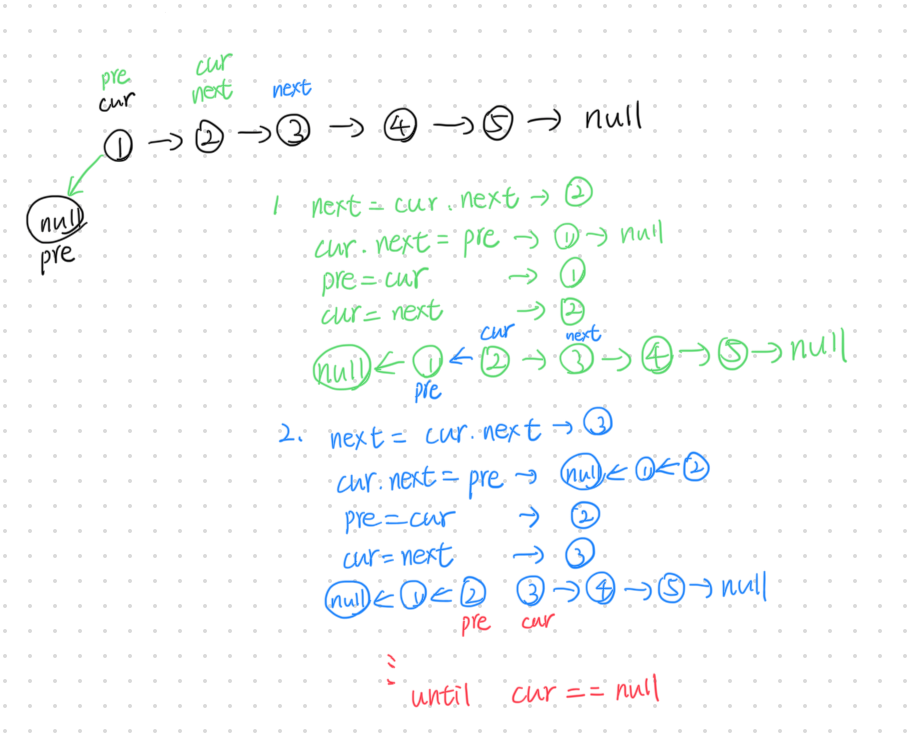 cur
pre next next
cur
① → ② → ③ → ④ → ⑤ → null
null
pre
1 next = cur.next → ②
cur.next = pre → ① → null
pre = cur → ①
cur = next → ②
cur next
null ← ① ← ② → ③ → ④ → ⑤ → null
pre
2. next = cur.next → ③
cur.next = pre → null ← ① ← ②
pre = cur → ②
cur = next → ③
null ← ① ← ② ③ → ④ → ⑤ → null
pre cur
until cur == null